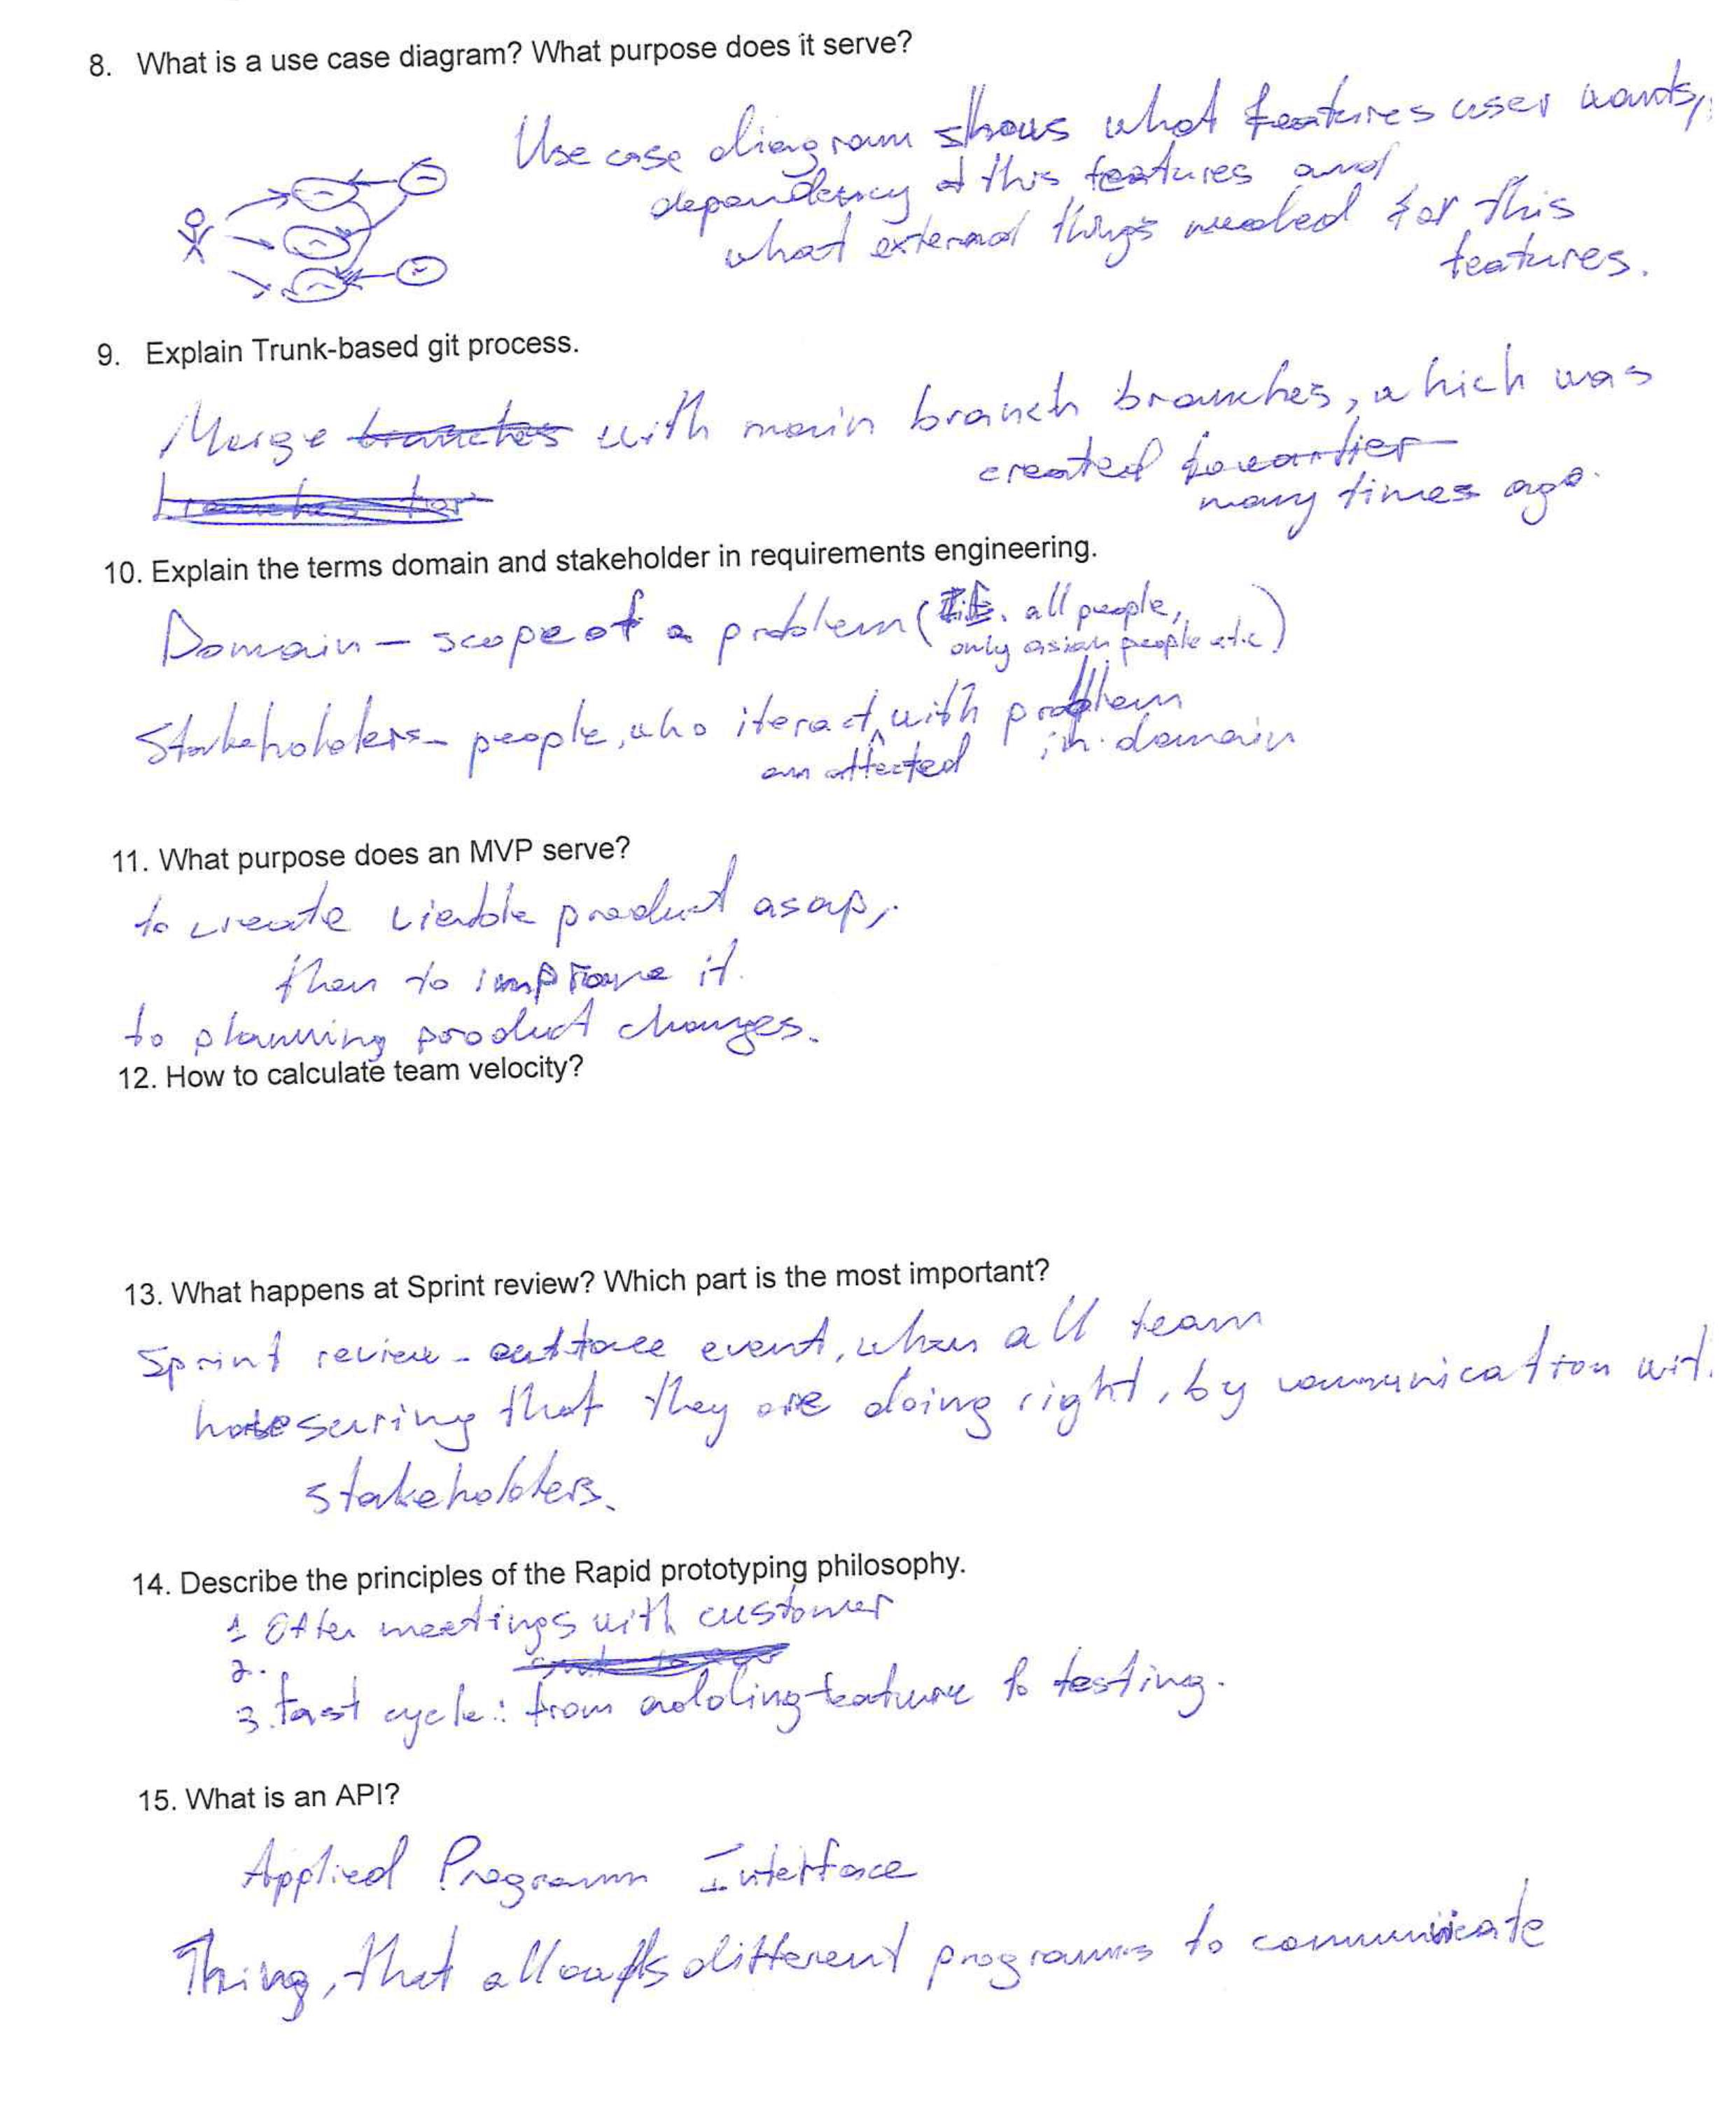 8. What is a use case diagram? What purpose does it serve?
Use case diagram shows what features user wants,
dependency of this features and
what external things needed for this
features.
9. Explain Trunk-based git process.
Merge branches with main branch branches, which was
created
many times ago.
10. Explain the terms domain and stakeholder in requirements engineering.
Domain - scope of a problem ( all people,
only asian people etc.)
Stakeholders - people, who iteract with problem
an affected in domain
11. What purpose does an MVP serve?
to create viable product asap,
then to improve it.
to planning product changes.
12. How to calculate team velocity?
13. What happens at Sprint review? Which part is the most important?
Sprint review - event, when all team
suring that they are doing right, by communication wit
stakeholders.
14. Describe the principles of the Rapid prototyping philosophy.
1 Often meetings with customer
2.
3. fast cycle: from adding feature to testing.
15. What is an API?
Applied Programm Interface
Thing, that allows different programms to communicate